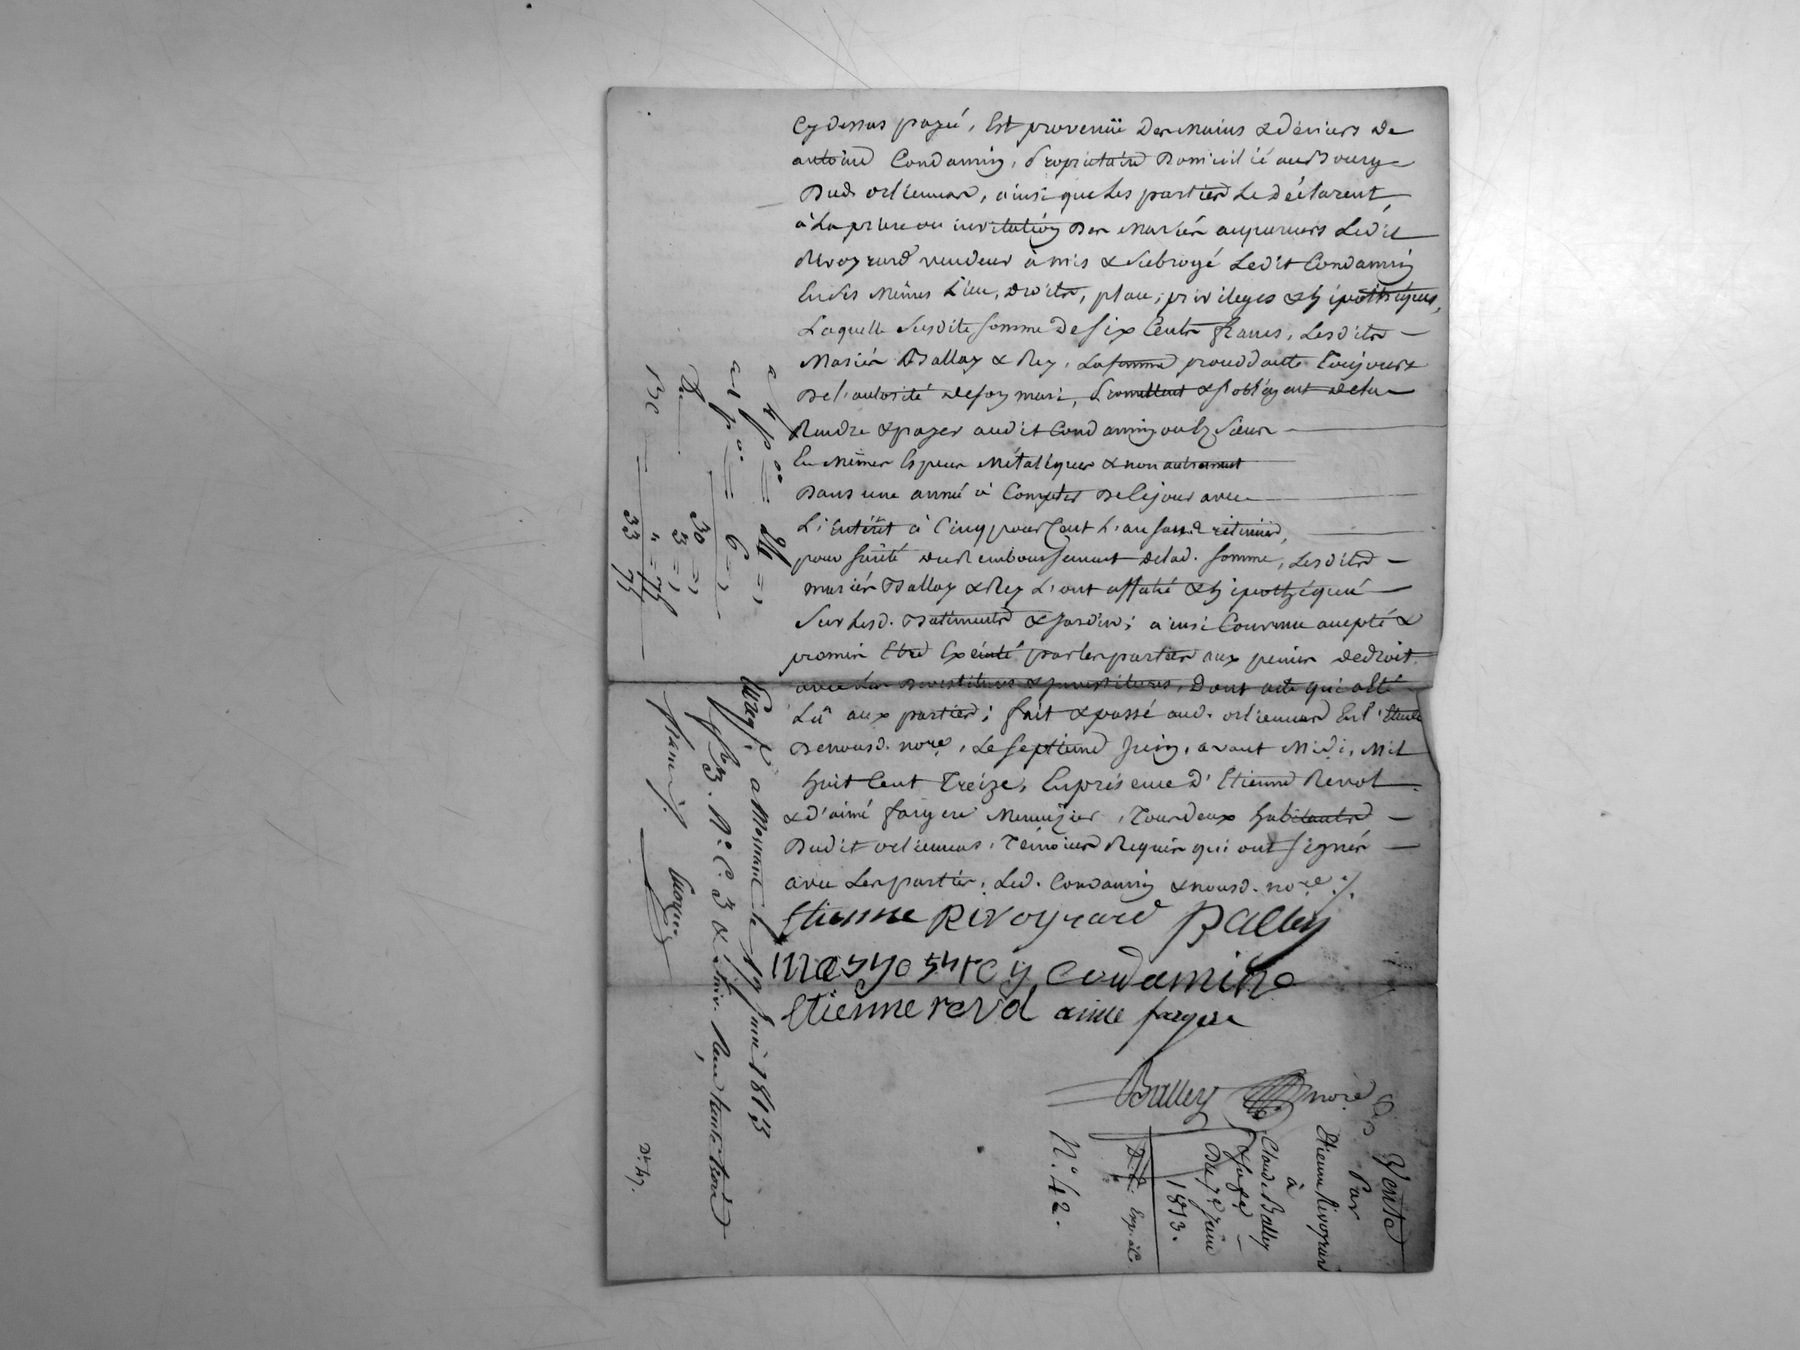 Cy dessus payé, Est provenuë Des mains & déniers de
antoine Condamin, propriétaire Domicilié au Bourg
Dud. orliennas, ainsi que les parties Le déclarent,
à La prière ou invitation Des Mariés acquereurs Ledit
Rivoyrard vendeur à mis & Subrogé Ledit Condamin
En ses Mêmes Lieu, Droits, place, privileges & hipothéques,
Laquelle Susdite somme de six Cents francs, Lesdits
Mariés Balley & Rey, La femme procédante Toujours
De l'autorité de son mari, promettent & s'obligent de la
Rendre & payer audit Condamin ou és Siens
En Mêmes Espèces Métalliques & non autrement
Dans une année à Compter De Cejour avec
L'intérêt à Cinq pour Cent L'an sans retenue,
pour sûreté du Remboursement de lad. somme, Lesdits
mariés Balley & Rey L'ont affecté & hipothéqué
Sur Lesd. Batiments & Jardin; ainsi Convenu accepté &
promis Etre Exécuté par les parties aux peines de droit
avec Les Devestitures & investitures, Dont acte qui a Eté
Lû aux parties; fait & passé aud. orliennas En l'Etude
De nousd. nore, Le Septieme Juin, avant Midi, Mil
huit Cent Treize, En présence d'Etienne Revol
& d'aimé fargere Menuizier, Tous deux habitants
Dudit orliennas, Témoins Requis qui ont signés
avec Les parties, Led. Condamin & nousd. nore ./.
Etienne Rivoyrard Balley
rey condamine
Etienne revol aimé fargere
Balley nore
a 4 p. % = 24 =,
a 1 p. % = 6 =,
30 =,
De 3 =,
" = 75
33 75
à Mornant le 19 juin 1813
fo 3. R. C. 3 & suiv. Reçu trente trois
Vente
Par
Etienne Rivoyrard
à
Claude Balley
Du 7e juin
1813.
N.° 42.